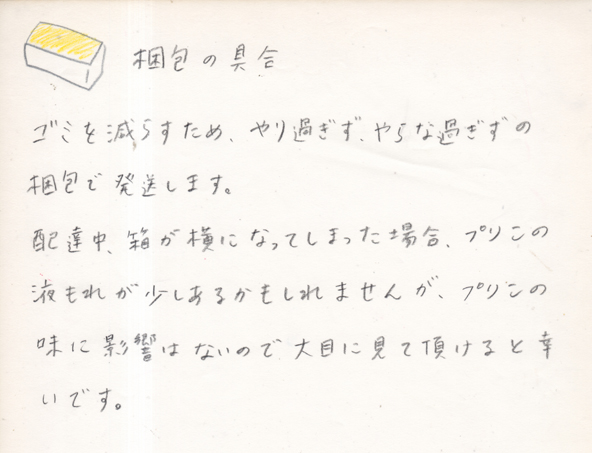 梱包の具合
ゴミを減らすため、やり過ぎず、やらな過ぎずの
梱包で発送します。
配達中、箱が横になってしまった場合、プリンの
液もれが少しあるかもしれませんが、プリンの
味に影響はないので大目に見て頂けると幸
いです。